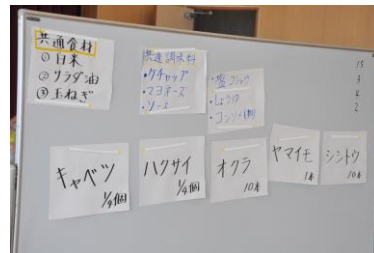 共通食材
① 白米
② サラダ油
③ 玉ねぎ
共通調味料
・ケチャップ
・マヨネーズ
・ソース
・塩コショウ
・しょうゆ
・コンソメ(顆)
15
3
4
2
キャベツ
1/4個
ハクサイ
1/4個
オクラ
10本
ヤマイモ
1本
シシトウ
10本